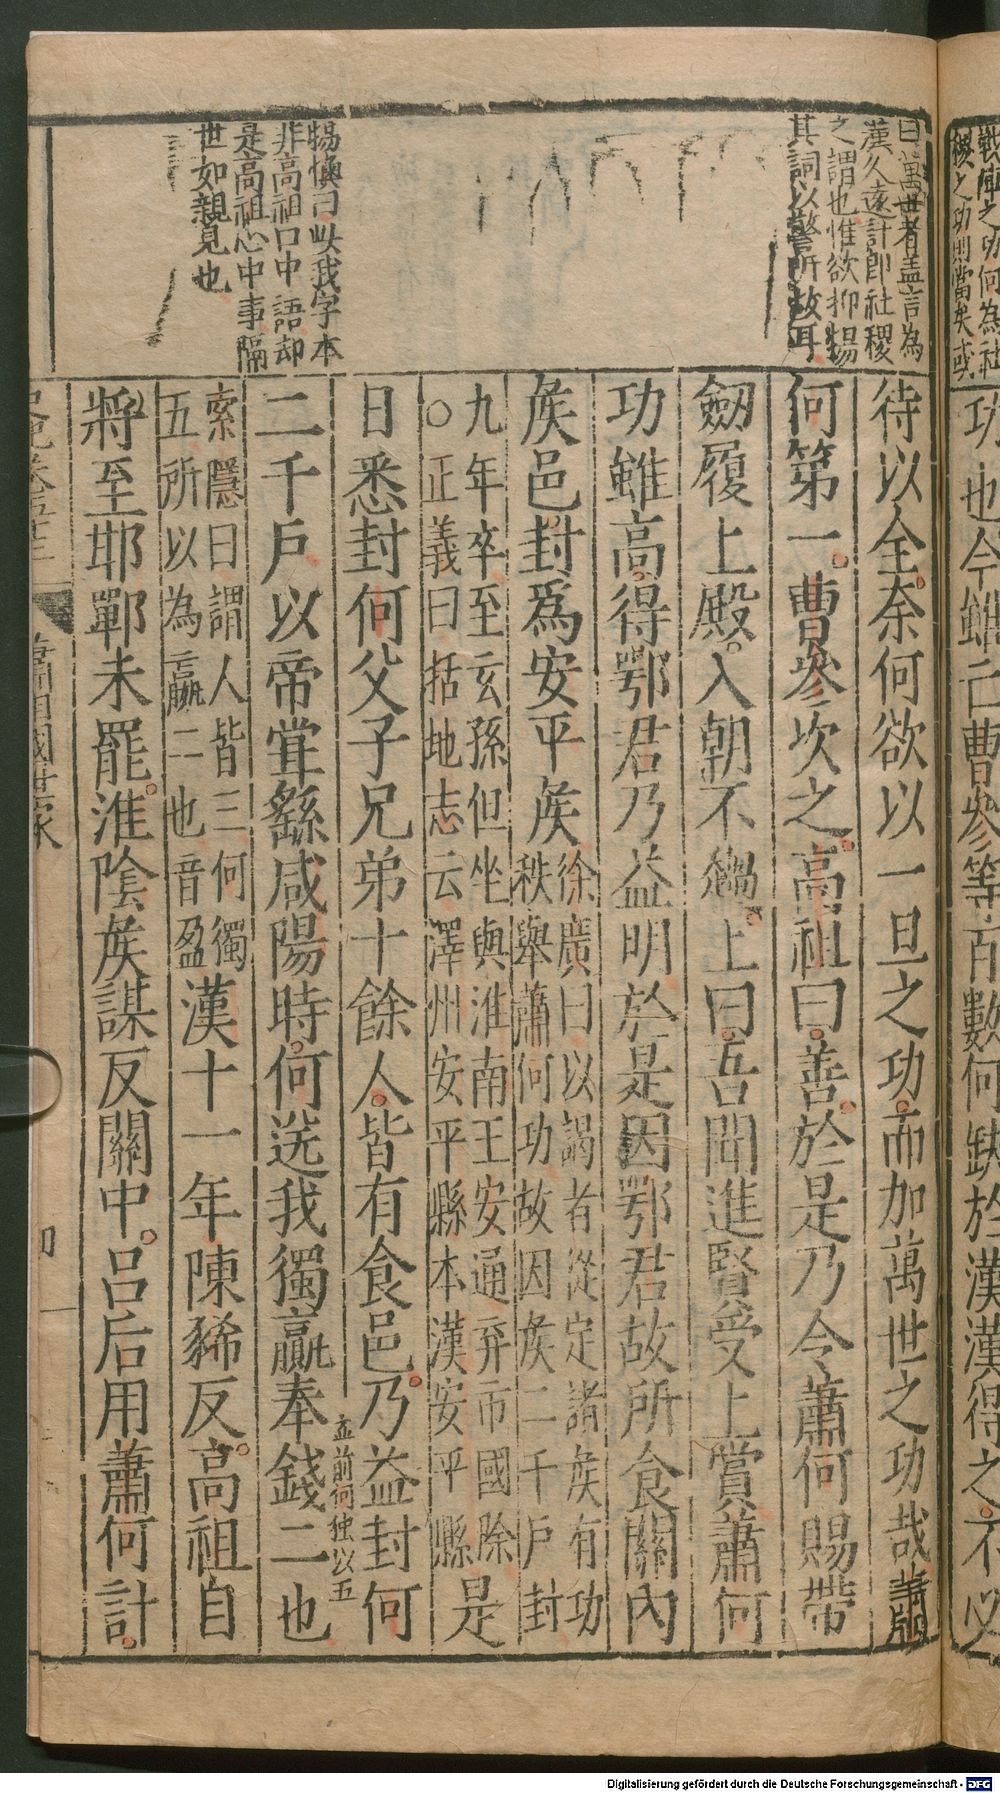 戰
功何為社
稷之功則當矣或
功也今雖亡曹參等百數何缺於漢漢得之不必
曰萬世者蓋言為
漢久遠計即社稷
之謂也惟欲抑揚
其詞以警所敖耳
楊慎曰此我字本
非高祖口中語却
是高祖心中事隔
世如親見也
待以全柰何欲以一旦之功而加萬世之功哉蕭
何第一曹參次之高祖曰善於是乃令蕭何賜帶
劒履上殿入朝不趨上曰吾聞進賢受上賞蕭何
功雖高得鄂君乃益明於是因鄂君故所食關內
矦邑封爲安平矦
徐廣曰以謁者從定諸矦有功
秩舉蕭何功故因矦二千戶封
九年卒至玄孫但坐與淮南王安通弃市國除
○正義曰括地志云澤州安平縣本漢安平縣
是
日悉封何父子兄弟十餘人皆有食邑乃益封何
二千戶以帝甞繇咸陽時何送我獨贏奉錢二也
孟前何独以五
索隱曰謂人皆三何獨
五所以為贏二也音盈
漢十一年陳豨反高祖自
將至邯鄲未罷淮陰矦謀反關中呂后用蕭何計
蕭相國世家
Digitalisierung gefördert durch die Deutsche Forschungsgemeinschaft - DFG